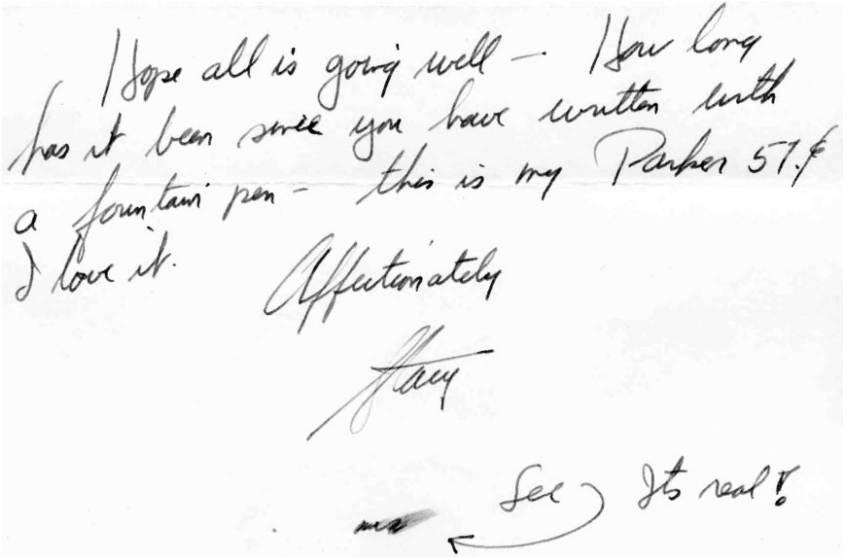 Hope all is going well – How long
has it been since you have written with
a fountain pen – this is my Parker 51. &
I love it.
Affectionately
Stacy
See Its real!